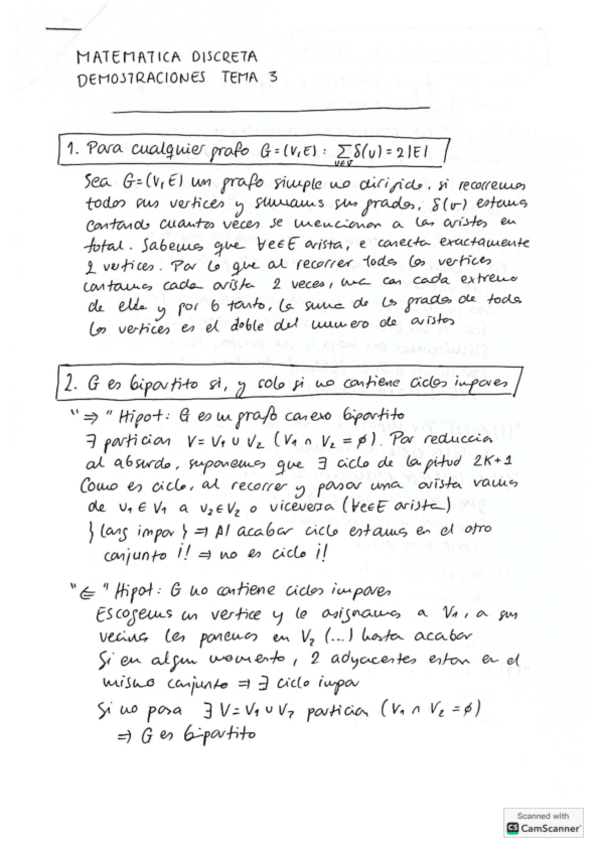 MATEMATICA DISCRETA
DEMOSTRACIONES TEMA 3
1. Para cualquier grafo G=(V,E): ∑ δ(v) = 2|E|
v∈V
Sea G=(V,E) un grafo simple no dirigido, si recorremos
todos sus vertices y sumamos sus grados, δ(v) estamos
contando cuantas veces se mencionan a las aristas en
total. Sabemos que ∀e∈E arista, e conecta exactamente
2 vertices. Por lo que al recorrer todos los vertices
contamos cada arista 2 veces, una con cada extremo
de ella y por lo tanto, la suma de los grados de todos
los vertices es el doble del numero de aristas
2. G es bipartito si, y solo si no contiene ciclos impares
"⇒" Hipot: G es un grafo conexo bipartito
∃ particion V = V₁ ∪ V₂ (V₁ ∩ V₂ = ∅). Por reduccion
al absurdo, suponemos que ∃ ciclo de longitud 2K+1
Como es ciclo, al recorrer y pasar una arista vamos
de v₁ ∈ V₁ a v₂ ∈ V₂ o viceversa (∀e∈E arista)
} long impar } ⇒ Al acabar ciclo estamos en el otro
conjunto ¡! ⇒ no es ciclo ¡!
"⇐" Hipot: G no contiene ciclos impares
Escogemos un vertice y le asignamos a V₁, a sus
vecinos les ponemos en V₂ (...) hasta acabar
Si en algun momento, 2 adyacentes estan en el
mismo conjunto ⇒ ∃ ciclo impar
Si no pasa ∃ V = V₁ ∪ V₂ particion (V₁ ∩ V₂ = ∅)
⇒ G es bipartito
Scanned with
CS CamScanner